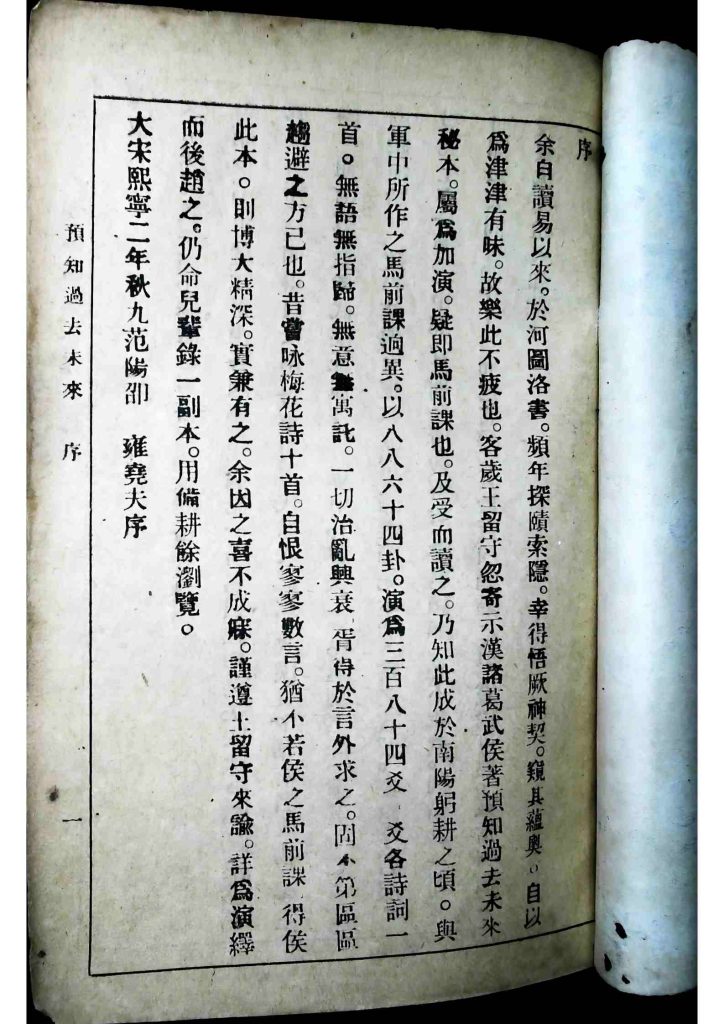 序
余自讀易以來。於河圖洛書。頻年探賾索隱。幸得悟厥神契。窺其蘊奧。自以
爲津津有味。故樂此不疲也。客歲王留守忽寄示漢諸葛武侯著預知過去未來
秘本。屬爲加演。疑即馬前課也。及受而讀之。乃知此成於南陽躬耕之頃。與
軍中所作之馬前課逈異。以八八六十四卦。演爲三百八十四爻 爻各詩詞一
首。無語無指歸。無意無寓託。一切治亂興衰 胥得於言外求之。固不第區區
趨避之方已也。昔嘗咏梅花詩十首。自恨寥寥數言。猶不若侯之馬前課 得侯
此本。則博大精深。實兼有之。余因之喜不成寐。謹遵王留守來諭。詳爲演繹
而後趙之。仍命兒輩錄一副本。用備耕餘瀏覽。
大宋熙寧二年秋九范陽邵 雍堯夫序
預知過去未來 序 一